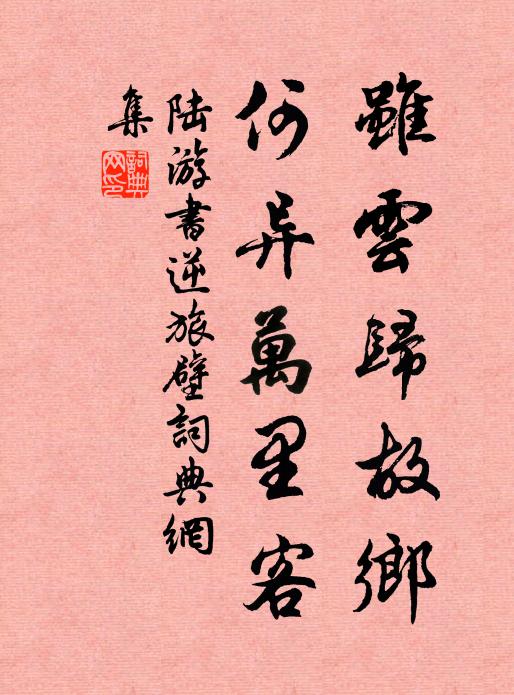 雖雲歸故鄉
何异萬里客
陸游書逆旅壁詞典網
集
詞典
网印